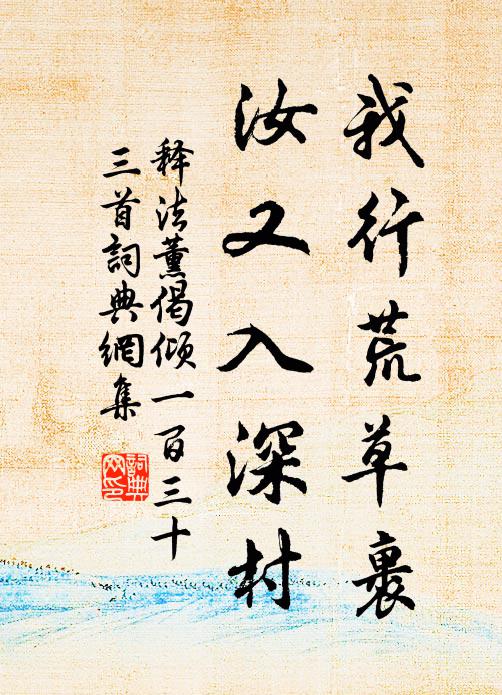 我行荒草裏
汝又入深村
释法薰偈倾一百三十
三首詞典網集
詞典網印